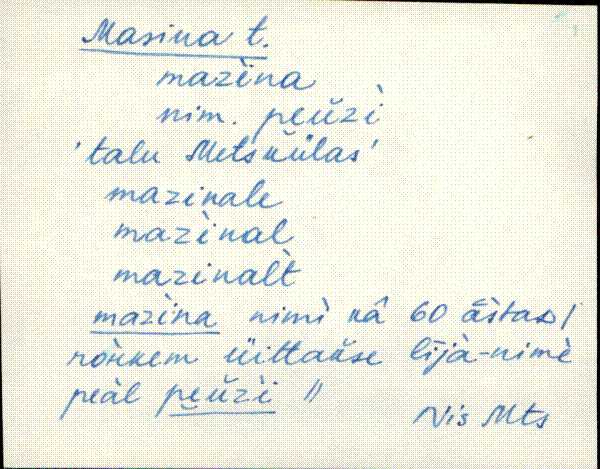 Masina t.
mazìna
nim. peŭzì
'talu Metskülas'
mazinale
mazìnal
mazinalt̀
mazìna nimì kâ 60 ās̀tas/
rohkem üittakse līj̀à-nimè
peàl peŭzì //
Nis Mts